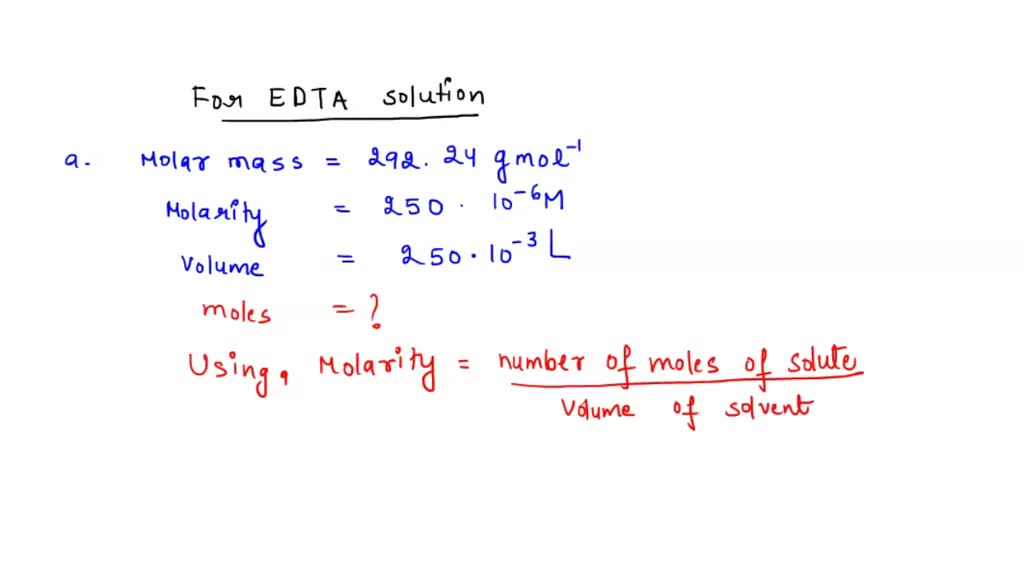 For EDTA solution
a. Molar mass = 292.24 g mol⁻¹
Molarity = 250 · 10⁻⁶ M
Volume = 250 · 10⁻³ L
moles = ?
Using, Molarity = number of moles of solute
Volume of solvent